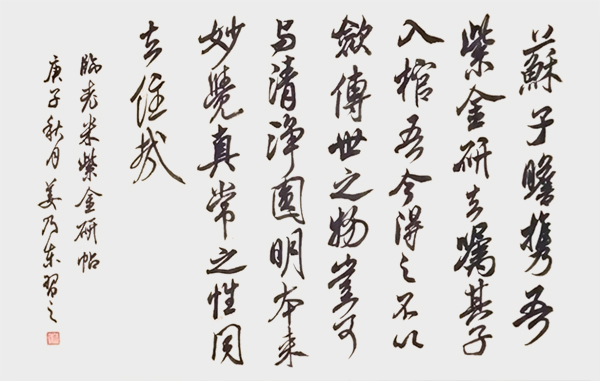 蘇子瞻携吾
紫金研去嘱其子
入棺吾今得之不以
斂傳世之物豈可
与清净圓明本来
妙覺真常之性同
去住哉
臨老米紫金研帖
庚子秋月姜乃東習之